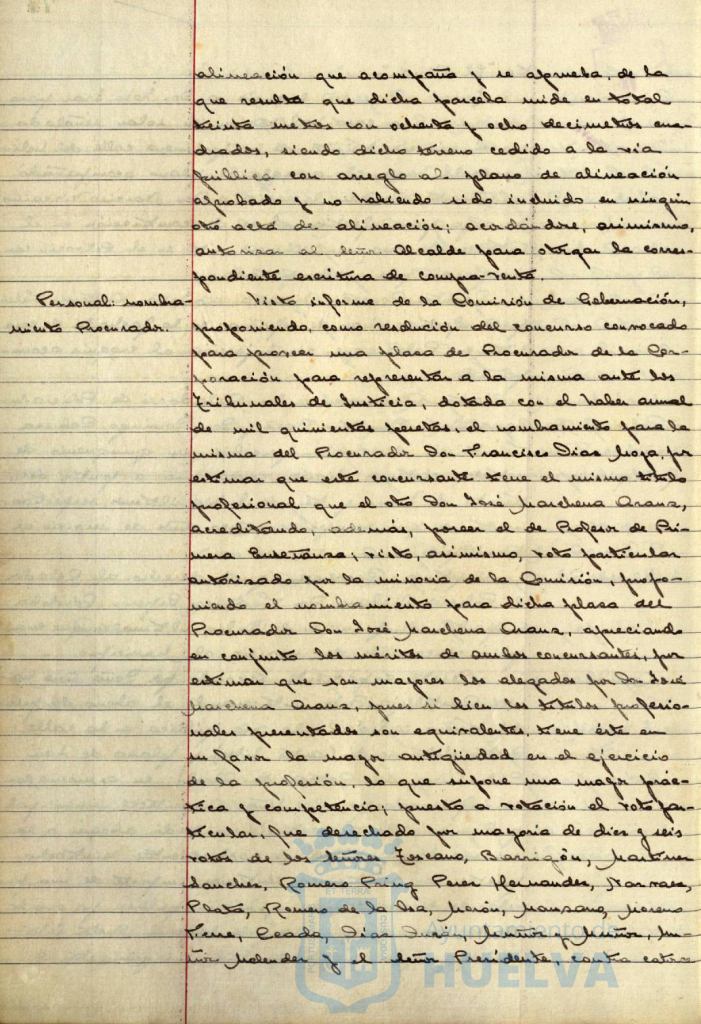 alineación que acompaña y se aprueba, de la
que resulta que dicha parcela mide en total
treinta metros con ochenta y ocho decimetros cua-
drados, siendo dicho terreno cedido a la via
pública con arreglo al plano de alineación
aprobado y no habiendo sido incluido en ningún
otro acta de alineación; acordándose, asimismo,
autorizar al Señor Alcalde para otorgar la corres-
pondiente escritura de compra-venta.
Personal: nombra-
miento Procurador.
Visto informe de la Comisión de Gobernación,
proponiendo, como resolución del concurso convocado
para proveer una plaza de Procurador de la Cor-
poración para representar a la misma ante los
Tribunales de Justicia, dotada con el haber anual
de mil quinientas pesetas, el nombramiento para la
misma del Procurador Don Francisco Dias Moga, por
estimar que este concursante tiene el mismo titulo
profesional que el otro Don José Marchena Aranz,
acreditando, además, poseer el de Profesor de Pri-
mera Enseñanza; visto, asimismo, voto particular
autorizado por la minoria de la Comisión, propo-
niendo el nombramiento para dicha plaza del
Procurador Don José Marchena Aranz, apreciando
en conjunto los méritos de ambos concursantes, por
estimar que son mayores los alegados por Don José
Marchena Aranz, pues si bien los titulos profesio-
nales presentados son equivalentes, tiene éste en
su favor la mayor antigüedad en el ejercicio
de la profesión, lo que supone una mayor prác-
tica y competencia; puesto a votación el voto par-
ticular, fue desechado por mayoria de diez y seis
votos de los Señores Toscano, Barrigón, Martinez
Sanchez, Romero Perez Hernandez, Narvaez,
Plata, Romero de la Isa, Morón, Manzano, Moreno
Ceada, Dias Muñoz y Muñoz, Mu-
ñoz y el Señor Presidente, contra cator-
Ayuntamiento de
HUELVA